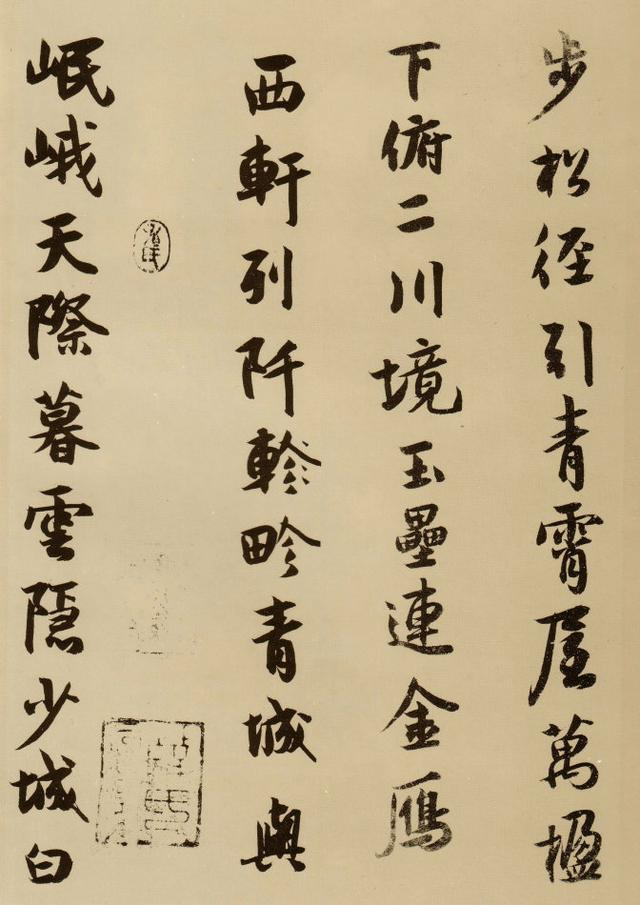 步松径引青霄屋萬楹
下俯二川境玉壘連金鴈
西軒列阡軫畛青城與
岷峨天際暮雲隠少城白